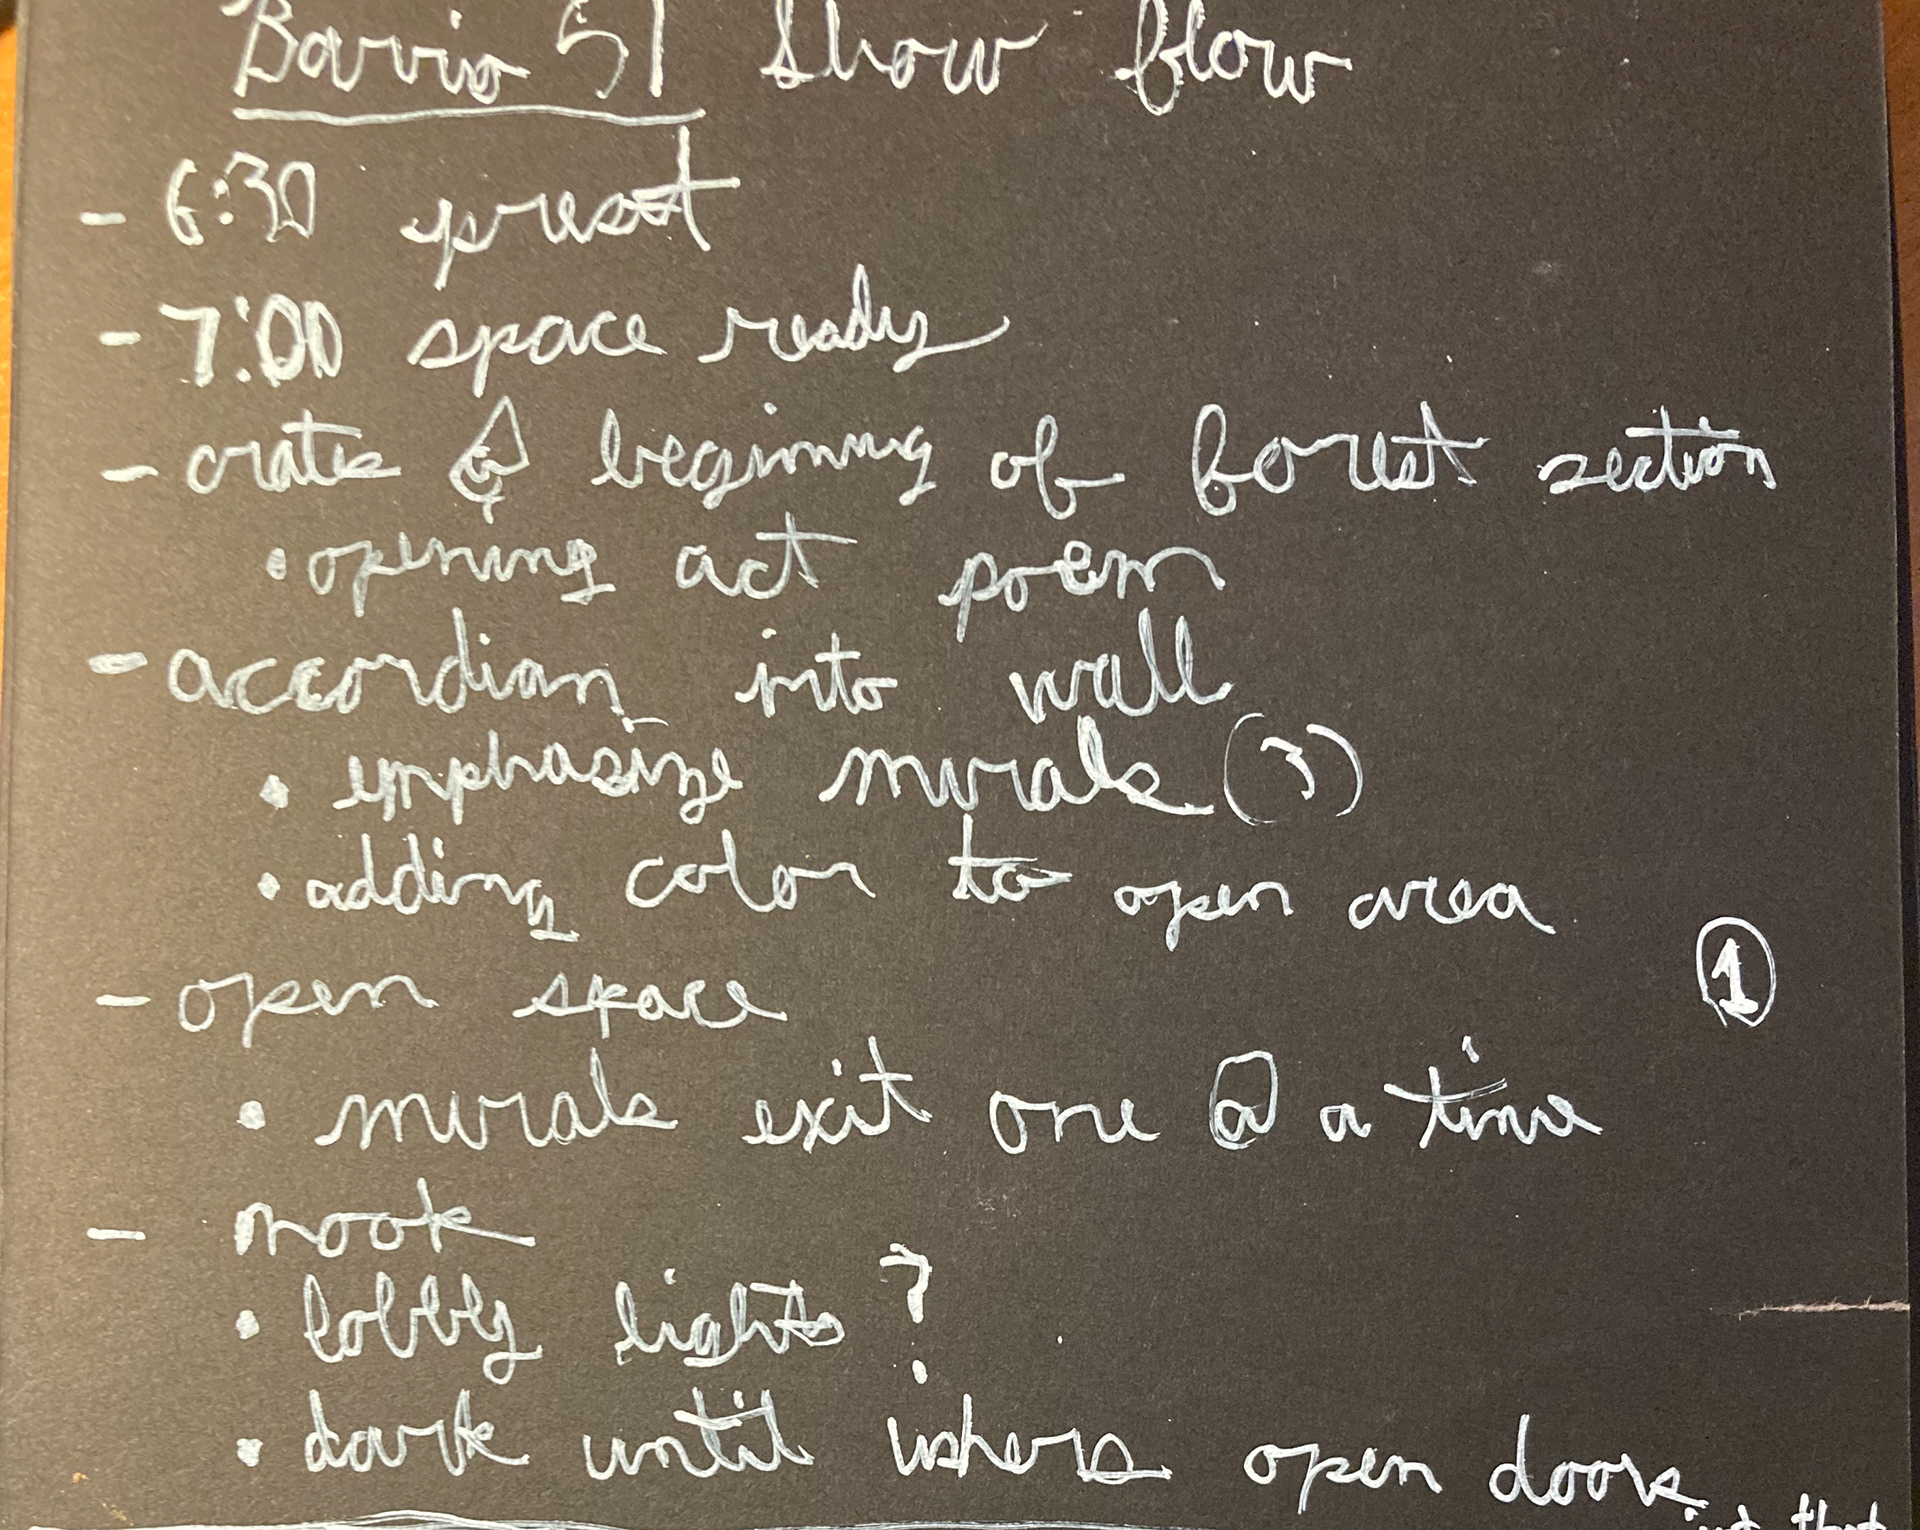 Barrio 51 Show flow
- 6:30 preset
- 7:00 space ready
- crates & beginning of forest section
• opening act poem
- accordian into wall
• emphasize murals (3)
• adding color to open area
- open space
1
• murals exit one @ a time
- nook
• lobby lights?
• dark until ushers open doors